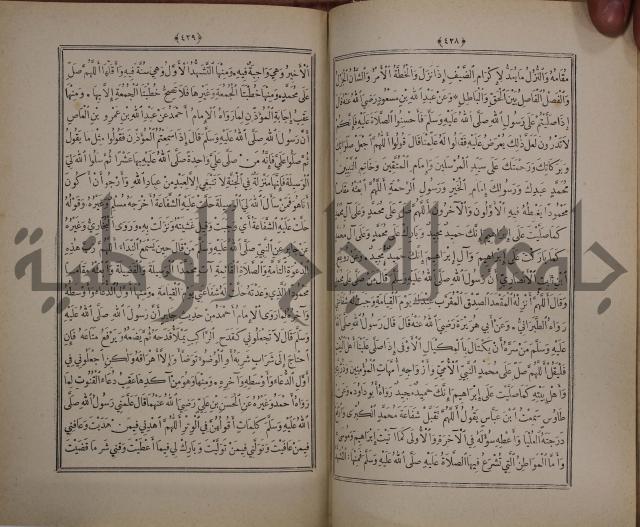 ﴿٤٣٨﴾
مقامه والنزل ما يعد لإكرام الضيف إذا نزل والخطة الأمر والشأن
والفصل الفاصل بين الحق والباطل * وعن عبد الله بن مسعود رضي الله عنه قال
إذا صليتم على رسول الله صلى الله عليه وسلم فأحسنوا الصلاة عليه فإنكم
لا تدرون لعل ذلك يعرض عليه فقالوا له علمنا قال قولوا اللهم اجعل صلواتك
وبركاتك ورحمتك على سيد المرسلين وإمام المتقين وخاتم النبيين
محمد عبدك ورسولك إمام الخير ورسول الرحمة اللهم ابعثه مقاما
محمودا يغبطه فيه الأولون والآخرون اللهم صل على محمد وعلى آل محمد
كما صليت على إبراهيم إنك حميد مجيد وبارك على محمد وعلى آل محمد
كما باركت على إبراهيم وآل إبراهيم إنك حميد مجيد
ابن ثابت الأنصاري أن رسول الله صلى الله عليه وسلم
وقال اللهم أنزله المقعد الصدق المقرب عندك يوم القيامة وجبت
رواه الطبراني * وعن أبي هريرة رضي الله عنه قال قال رسول الله صلى الله
عليه وسلم من سره أن يكتال بالمكيال الأوفى إذا صلى علينا أهل البيت
فليقل اللهم صل على محمد النبي الأمي وأزواجه أمهات المؤمنين وذريته
وأهل بيته كما صليت على إبراهيم إنك حميد مجيد رواه أبو داود * وعن
طاوس سمعت ابن عباس يقول اللهم تقبل شفاعة محمد الكبرى وارفع
درجته العليا وأعطه سؤله في الآخرة والأولى كما آتيت إبراهيم وموسى
وأما المواطن التي تشرع فيها الصلاة عليه صلى الله عليه وسلم فمنها التشهد
﴿٤٣٩﴾
الأخير وهي واجبة فيه * ومنها التشهد الأول وهي سنة فيه وأقلها اللهم صل
على محمد * ومنها خطبة الجمعة وغيرها فلا تصح خطبتا الجمعة إلا بها * ومنها
عقب إجابة المؤذن لما رواه الإمام أحمد عن عبد الله بن عمرو بن العاص
أن رسول الله صلى الله عليه وسلم قال إذا سمعتم المؤذن فقولوا مثل ما يقول
ثم صلوا علي فإنه من صلى علي واحدة صلى الله عليه بها عشرا ثم سلوا الله لي
الوسيلة فإنها منزلة في الجنة لا تنبغي إلا لعبد من عباد الله وأرجو أن أكون
أنا هو فمن سأل الله لي الوسيلة حلت عليه الشفاعة أخرجه مسلم وغيره * وقوله
حلت عليه الشفاعة أي وجبت وقيل غشيته ونزلت به * وروى البخاري وغيره
عن جابر عن النبي صلى الله عليه وسلم من قال حين يسمع النداء اللهم رب هذه
الدعوة التامة والصلاة القائمة آت محمدا الوسيلة والفضيلة وابعثه مقاما
محمودا الذي وعدته حلت له شفاعتي يوم القيامة * ومنها أول الدعاء وأوسطه
وآخره لما روى الإمام أحمد من حديث جابر أن رسول الله صلى الله عليه
وسلم قال لا تجعلوني كقدح الراكب يملأ قدحه ثم يضعه ويرفع متاعه فإن
احتاج إلى شراب شربه أو الوضوء توضأ وإلا هراقه ولكن اجعلوني في
أول الدعاء وأوسطه وآخره * ومنها وهو من آكدها عقب دعاء القنوت لما
رواه أحمد وغيره عن الحسن بن علي رضي الله عنهما قال علمني رسول الله صلى
الله عليه وسلم كلمات أقولهن في الوتر اللهم اهدني فيمن هديت وعافني
فيمن عافيت وتولني فيمن توليت وبارك لي فيما أعطيت وقني شر ما قضيت
جامعة النجاح الوطنية